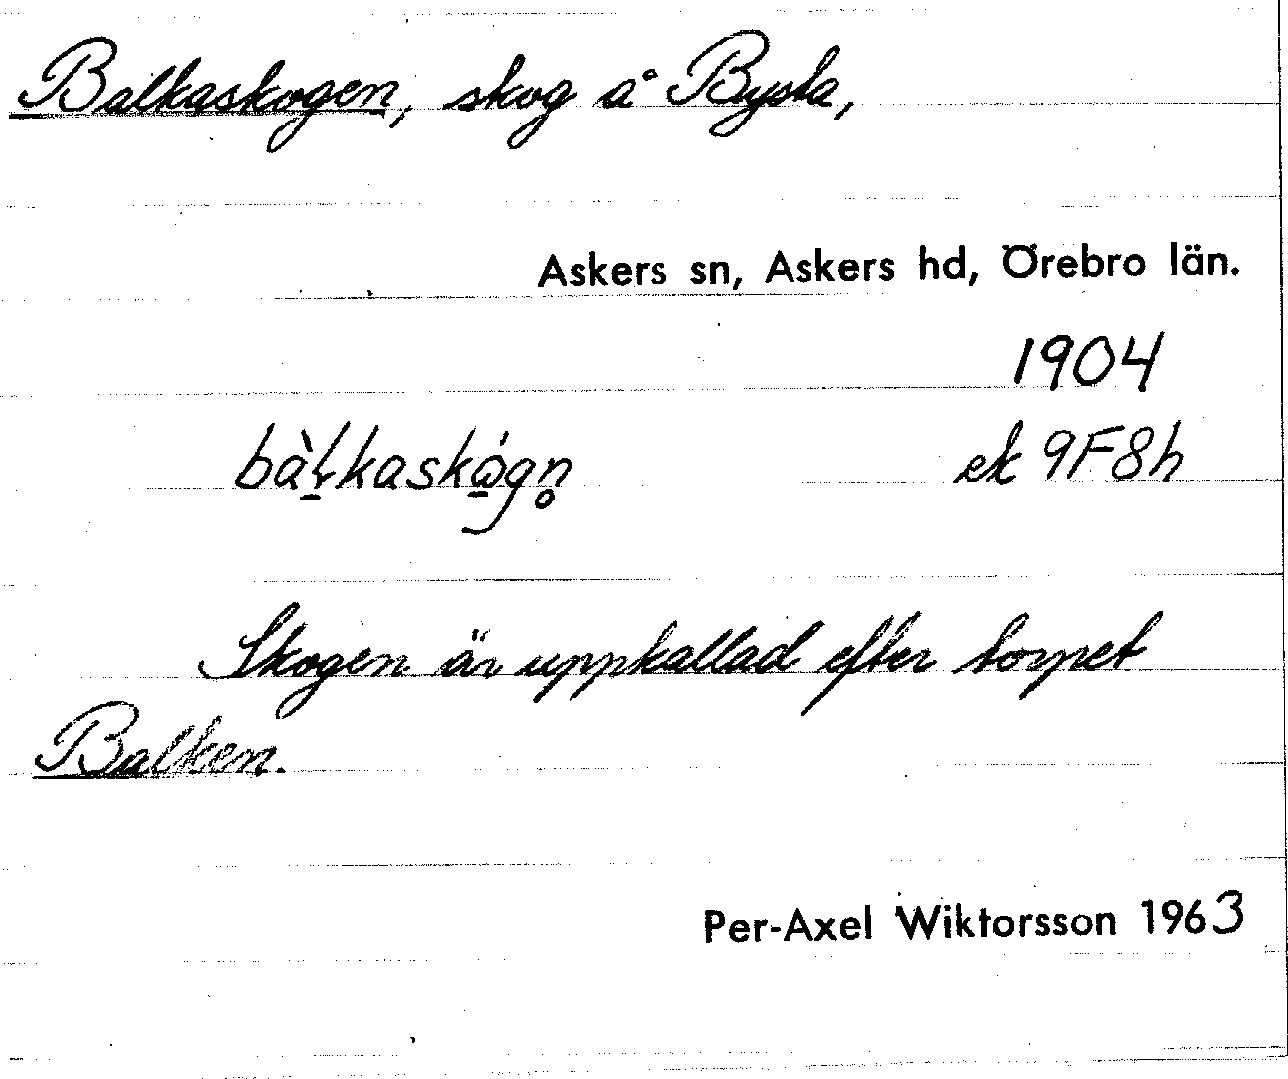 Balkaskogen, skog å Bysta,
Askers sn, Askers hd, Örebro län.
1904
bàl̠kaskώ̠gn̥
ek 9F8h
Skogen är uppkallad efter torpet
Balken.
Per-Axel Wiktorsson 1963